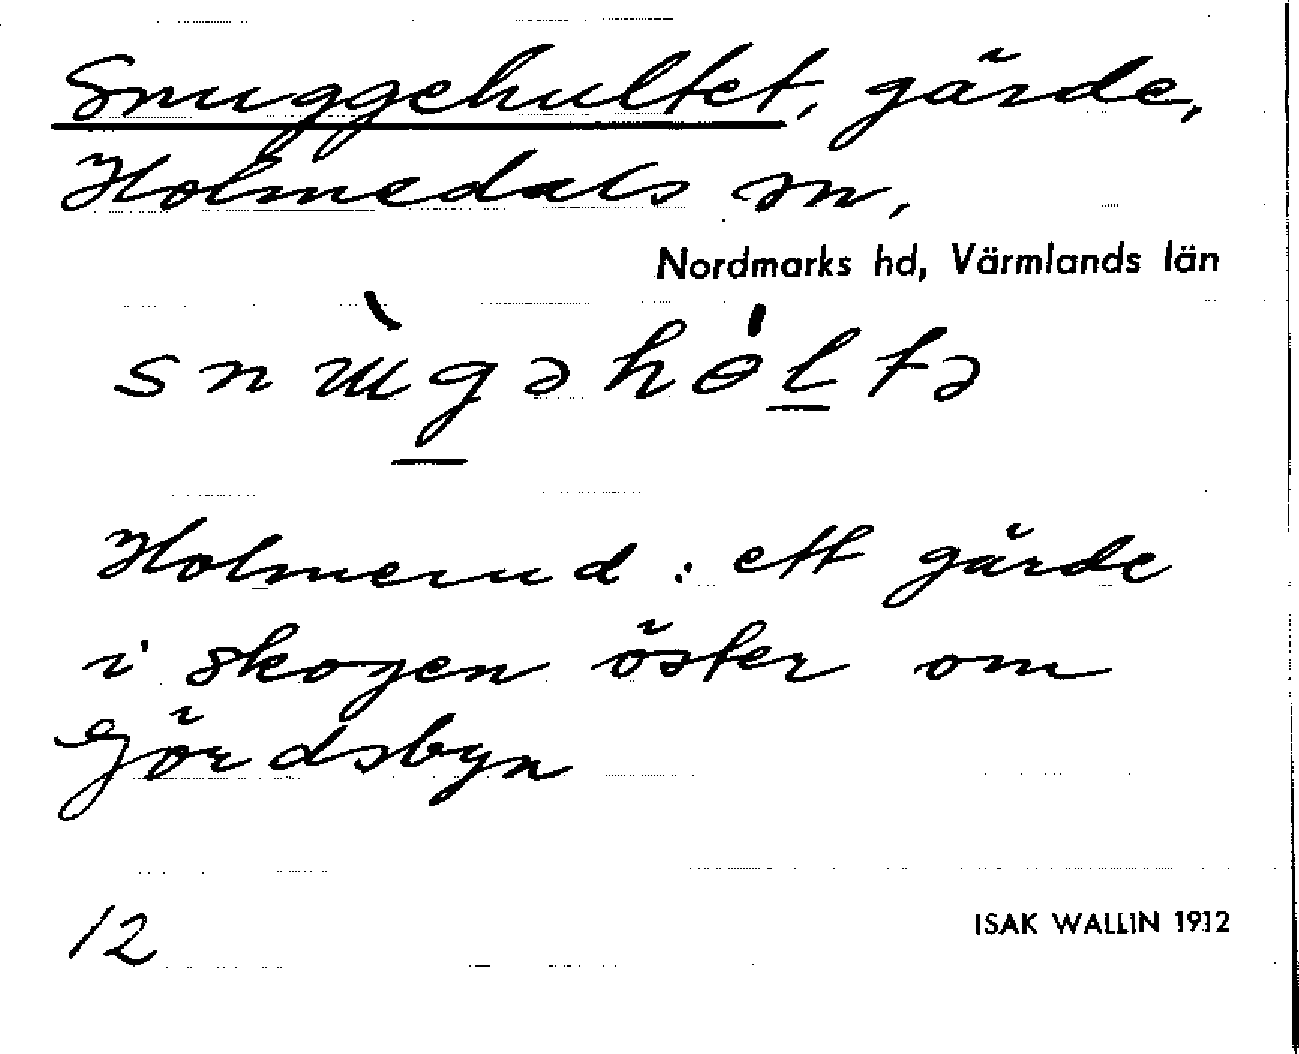 Snuggehultet, gärde,
Holmedals sn,
Nordmarks hd, Värmlands län
Holmerud: ett gärde
i skogen öster om
Gördsbyn
12
ISAK WALLIN 1912